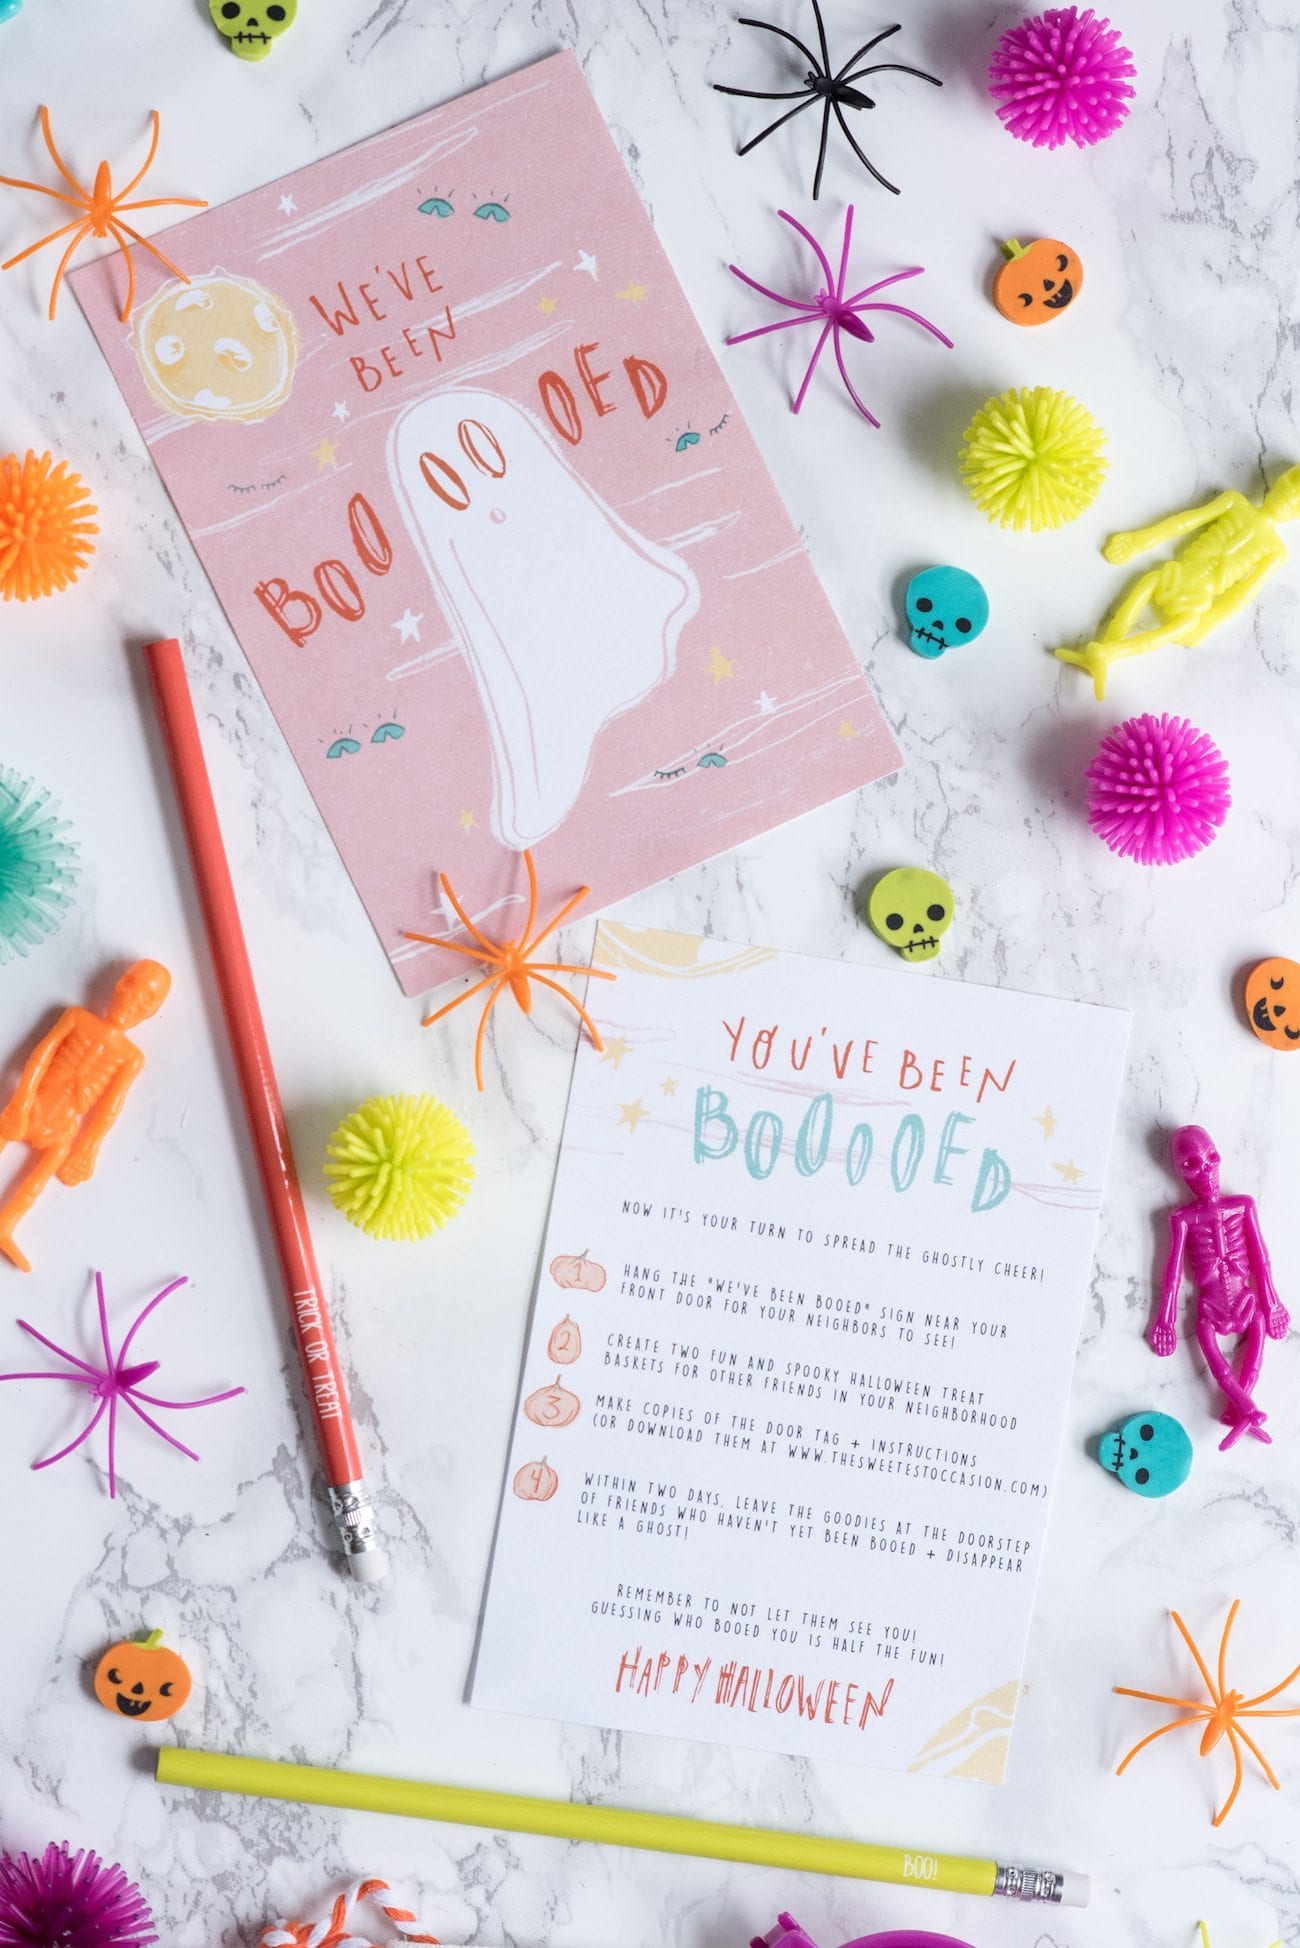 WE'VE
BEEN
BOOOOOED
YOU'VE BEEN
BOOOOOED
NOW IT'S YOUR TURN TO SPREAD THE GHOSTLY CHEER!
1 HANG THE "WE'VE BEEN BOOED" SIGN NEAR YOUR
FRONT DOOR FOR YOUR NEIGHBORS TO SEE!
2 CREATE TWO FUN AND SPOOKY HALLOWEEN TREAT
BASKETS FOR OTHER FRIENDS IN YOUR NEIGHBORHOOD
3 MAKE COPIES OF THE DOOR TAG + INSTRUCTIONS
(OR DOWNLOAD THEM AT WWW.THESWEETESTOCCASION.COM)
4 WITHIN TWO DAYS, LEAVE THE GOODIES AT THE DOORSTEP
OF FRIENDS WHO HAVEN'T YET BEEN BOOED + DISAPPEAR
LIKE A GHOST!
REMEMBER TO NOT LET THEM SEE YOU!
GUESSING WHO BOOED YOU IS HALF THE FUN!
HAPPY HALLOWEEN
TRICK OR TREAT
BOO!